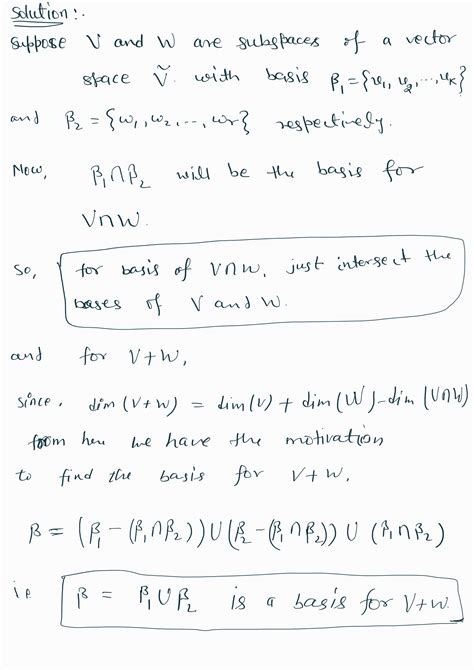 Solution:.
suppose V and W are subspaces of a vector
space Ṽ. with basis β₁={v₁, v₂,..., vₖ}
and β₂ = {w₁, w₂, ..., wr} respectively.
Now, β₁∩β₂ will be the basis for
V∩W.
So, for basis of V∩W, just intersect the
bases of V and W.
and for V+W,
since, dim (V+W) = dim(V) + dim(W) - dim (V∩W)
from here we have the motivation
to find the basis for V+W,
β = (β₁ - (β₁∩β₂)) ∪ (β₂ - (β₁∩β₂)) ∪ (β₁∩β₂)
i.e β = β₁ ∪ β₂ is a basis for V+W.